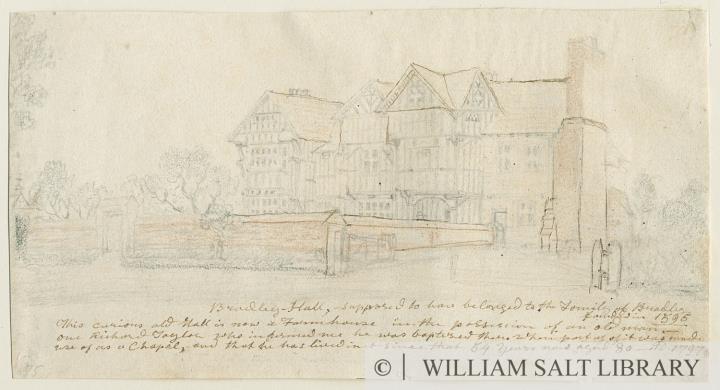 Bradley-Hall, supposed to have belonged to the Family of Bradley
built in 1595
This curious old Hall is now a Farmhouse in the possession of an old man
one Richard Taylor who informed me he was baptized there, when part of it was made
use of as a Chapel, and that he has lived in it since that 84 years and
© WILLIAM SALT LIBRARY